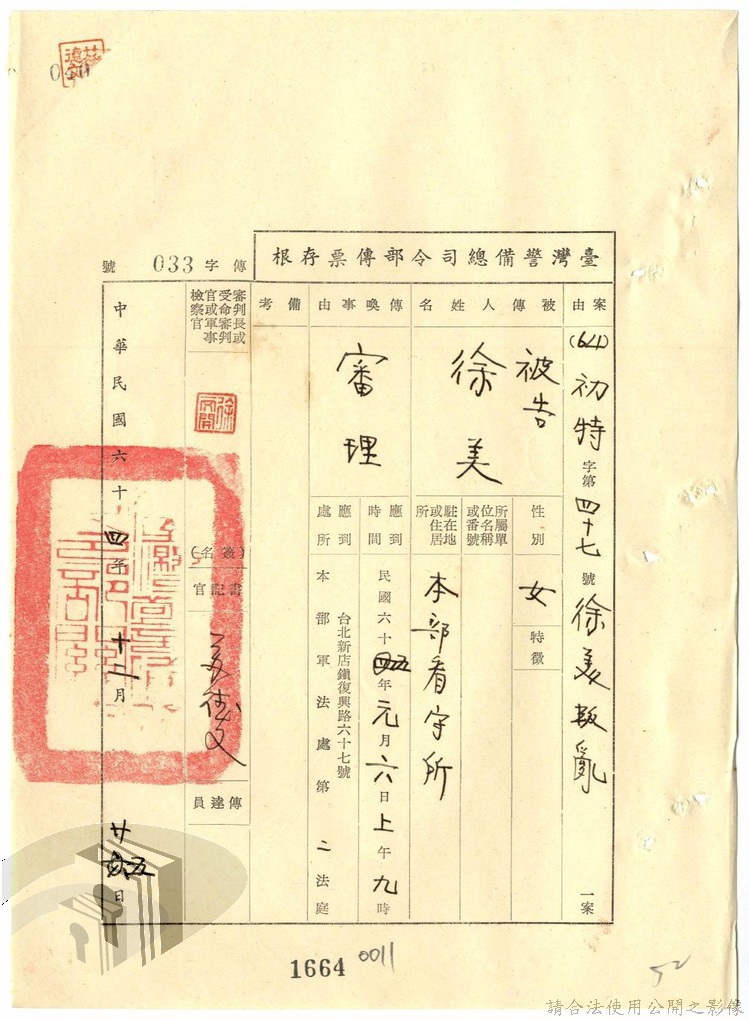 臺灣警備總司令部傳票存根
傳字 033 號
案由
(64)初特字第四十七號徐美叛亂一案
被傳人姓名
被告
徐美
性別
女
特徵
所屬單位名稱或番號
駐在地或住居所
本部看守所
傳喚事由
審理
應到時間
民國六十五年元月六日上午九時
應到處所
台北新店鎮復興路六十七號
本部軍法處第二法庭
備考
審判長或受命審判官或軍事檢察官
(簽名)
書記官
傳達員
中華民國六十四年十二月廿五日
1664
0011
52
請合法使用公開之影像